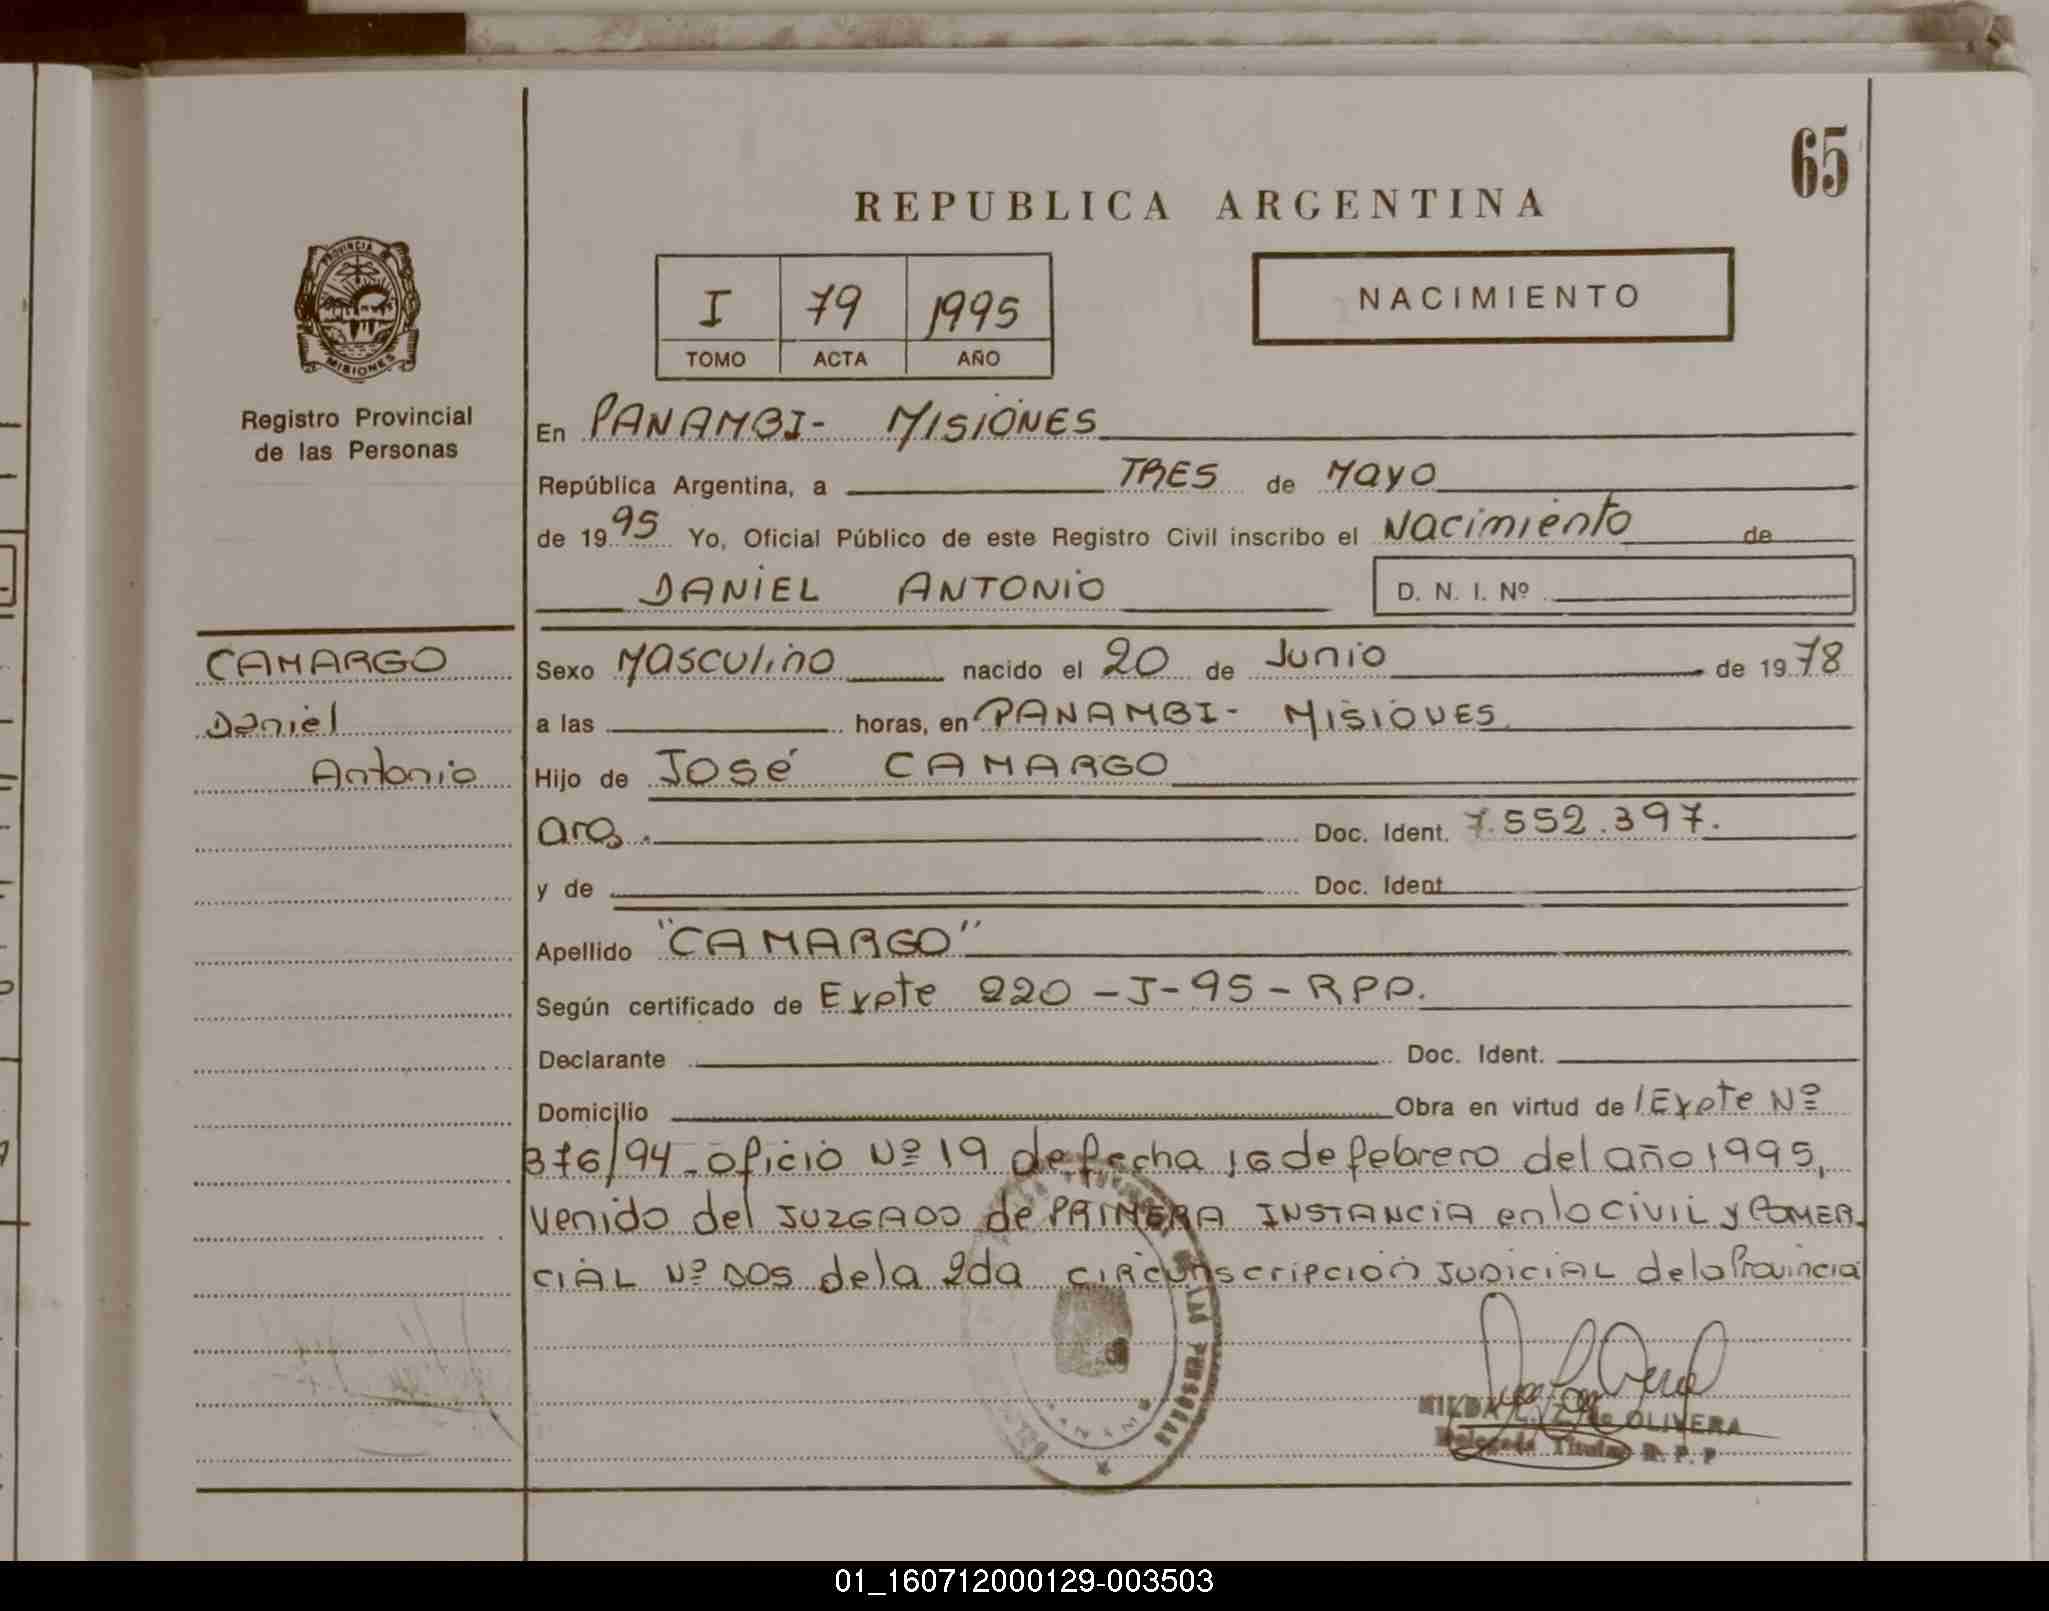 65
REPUBLICA ARGENTINA
PROVINCIA
MISIONES
I 79 1995
TOMO ACTA AÑO
NACIMIENTO
Registro Provincial
de las Personas
En PANAMBI- MISIONES
República Argentina, a TRES de MAYO
de 1995 Yo, Oficial Público de este Registro Civil inscribo el Nacimiento de
DANIEL ANTONIO D. N. I. Nº
CAMARGO
Daniel
Antonio
Sexo Masculino nacido el 20 de Junio de 1978
a las horas, en PANAMBI- MISIONES
Hijo de José CAMARGO
arg. Doc. Ident. 7.552.397.
y de Doc. Ident
Apellido "CAMARGO"
Según certificado de Expte 220-J-95-RPP.
Declarante Doc. Ident.
Domicilio Obra en virtud de /Expte Nº
376/94_oficio Nº 19 de fecha 16 de febrero del año 1995,
venido del JUZGADO de PRIMERA INSTANCIA en lo CIVIL y COMER-
CIAL Nº DOS de la 2da CIRCUNScripción JUDICIAL de la Provincia
HILDA L. Z. de OLIVERA
Delegada Titular R. P. P
01_160712000129-003503